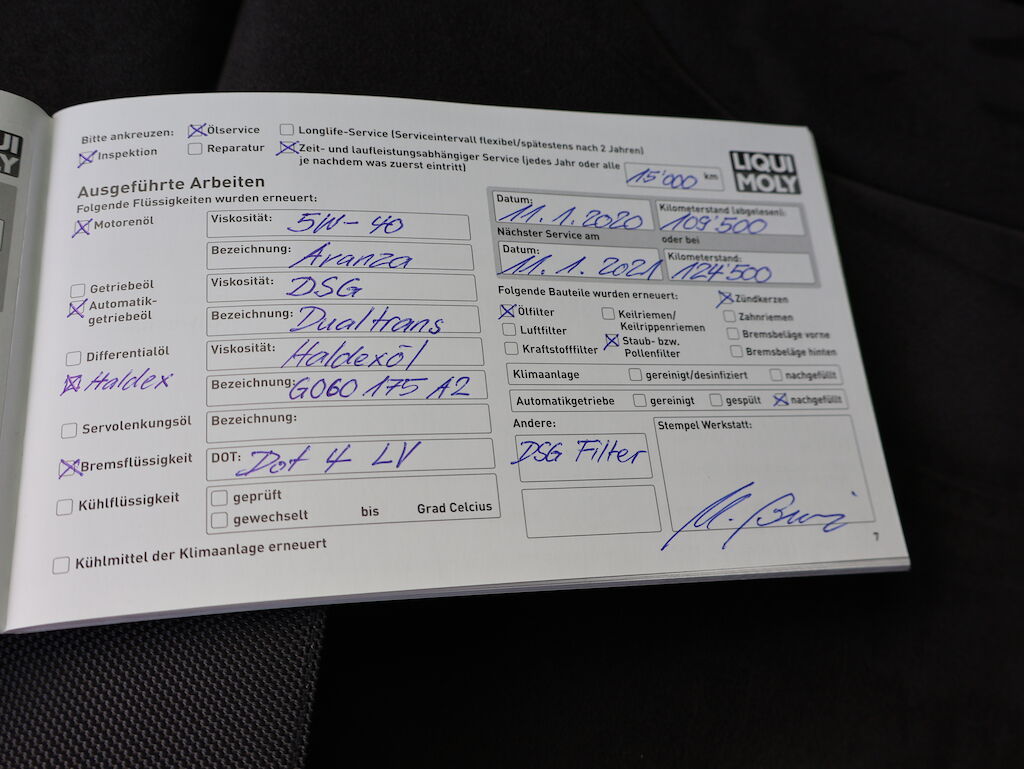 Bitte ankreuzen: Ölservice Longlife-Service (Serviceintervall flexibel/spätestens nach 2 Jahren)
Inspektion Reparatur Zeit- und laufleistungsabhängiger Service (jedes Jahr oder alle 15'000 km
je nachdem was zuerst eintritt)
LIQUI
MOLY
UI
LY
Ausgeführte Arbeiten
Folgende Flüssigkeiten wurden erneuert:
Motorenöl
Viskosität: 5W-40
Bezeichnung: Avanza
Getriebeöl
Automatik-
getriebeöl
Viskosität: DSG
Bezeichnung: Dualtrans
Differentialöl
Haldex
Viskosität: Haldexöl
Bezeichnung: G060 175 A2
Servolenkungsöl
Bezeichnung:
Bremsflüssigkeit
DOT: Dot 4 LV
Kühlflüssigkeit
geprüft
gewechselt bis Grad Celcius
Kühlmittel der Klimaanlage erneuert
Datum: 11.1.2020
Kilometerstand (abgelesen): 109'500
Nächster Service am oder bei
Datum: 11.1.2021
Kilometerstand: 124'500
Folgende Bauteile wurden erneuert:
Ölfilter
Luftfilter
Kraftstofffilter
Keilriemen/
Keilrippenriemen
Staub- bzw.
Pollenfilter
Zündkerzen
Zahnriemen
Bremsbeläge vorne
Bremsbeläge hinten
Klimaanlage gereinigt/desinfiziert nachgefüllt
Automatikgetriebe gereinigt gespült nachgefüllt
Andere:
DSG Filter
Stempel Werkstatt:
7